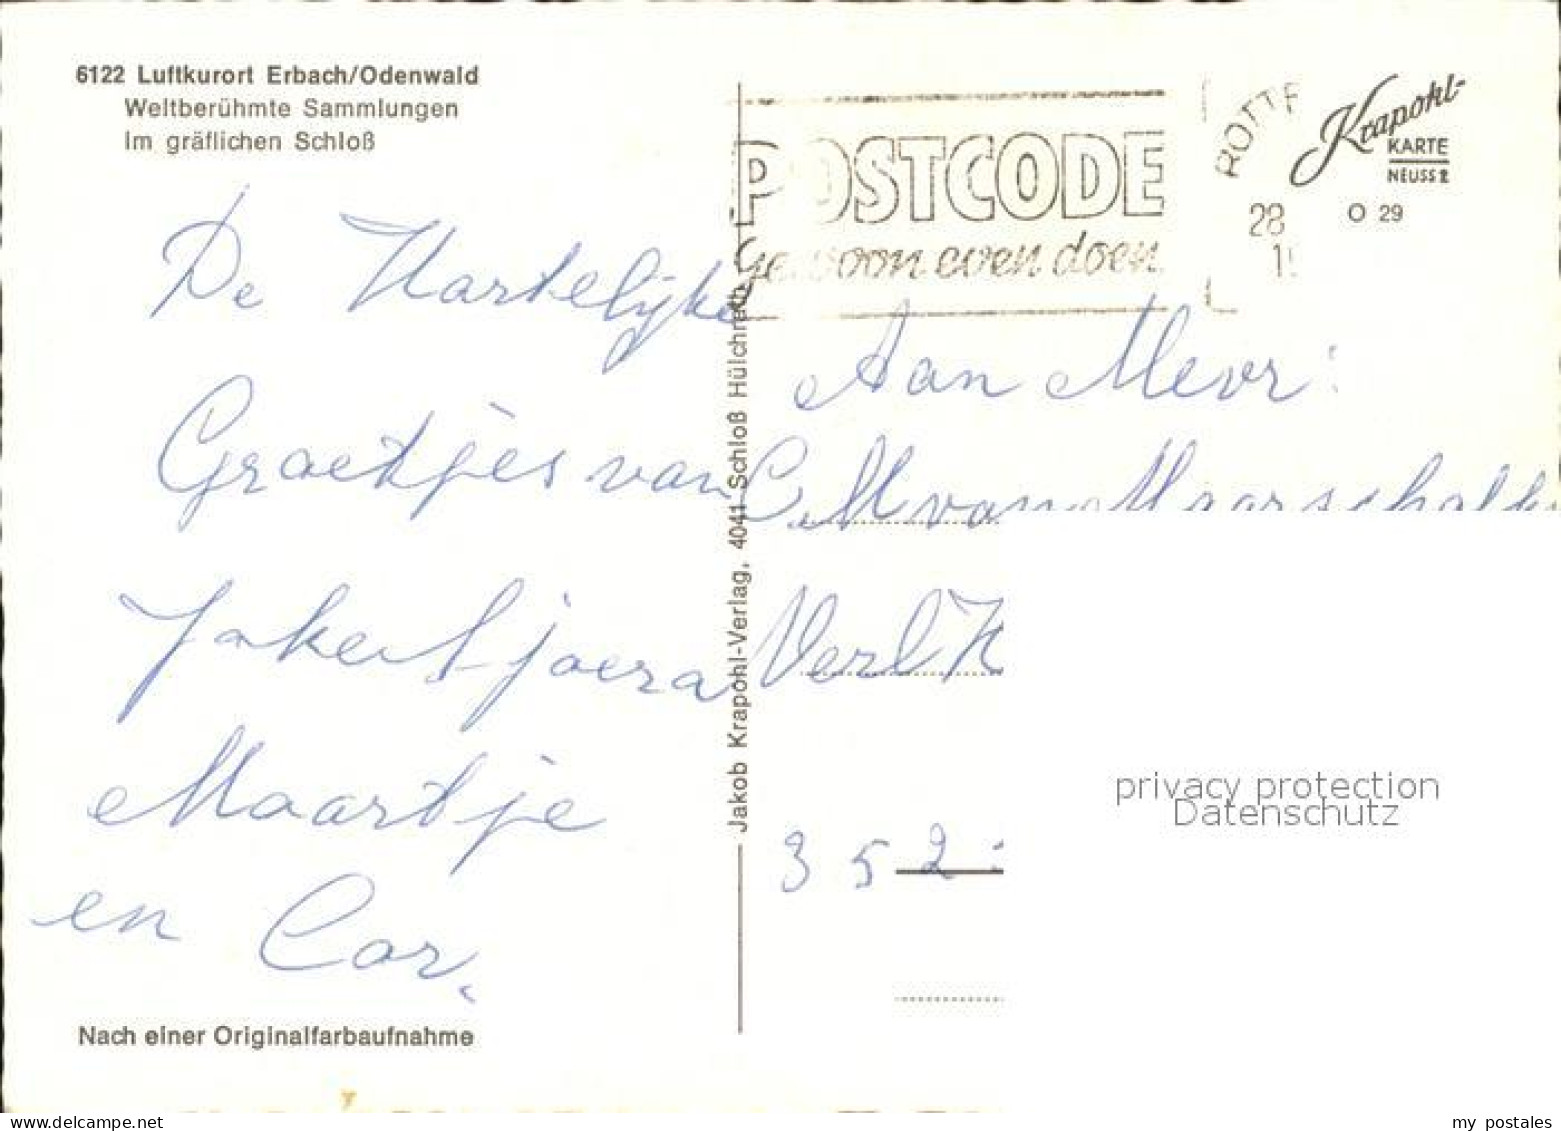 6122 Luftkurort Erbach/Odenwald
Weltberühmte Sammlungen
im gräflichen Schloß
De Hartelijke
Groetjes van
Maartje
en Cor.
Nach einer Originalfarbaufnahme
Jakob Krapohl-Verlag, 4041 Schloß Hülchrath
POSTCODE
gewoon even doen
ROTTE
28
Krapohl-
KARTE
NEUSS 2
O 29
Aan Mevr:
C. M van Maarschalk
Verl
3 5 2
privacy protection
Datenschutz
my postales